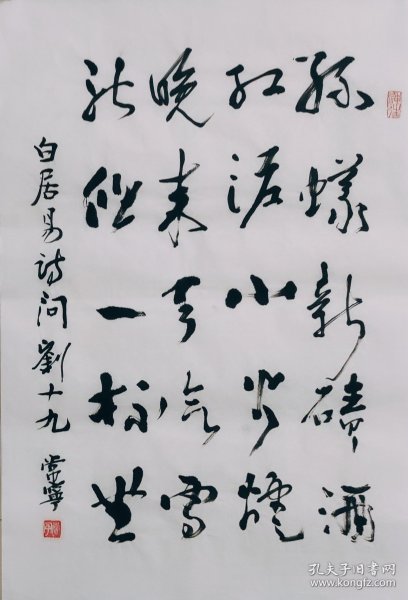 綠蟻新醅酒
红泥小火爐
晚来天欲雪
能飲一杯無
白居易诗问劉十九 常寧
孔夫子旧书网
www.kongfz.com